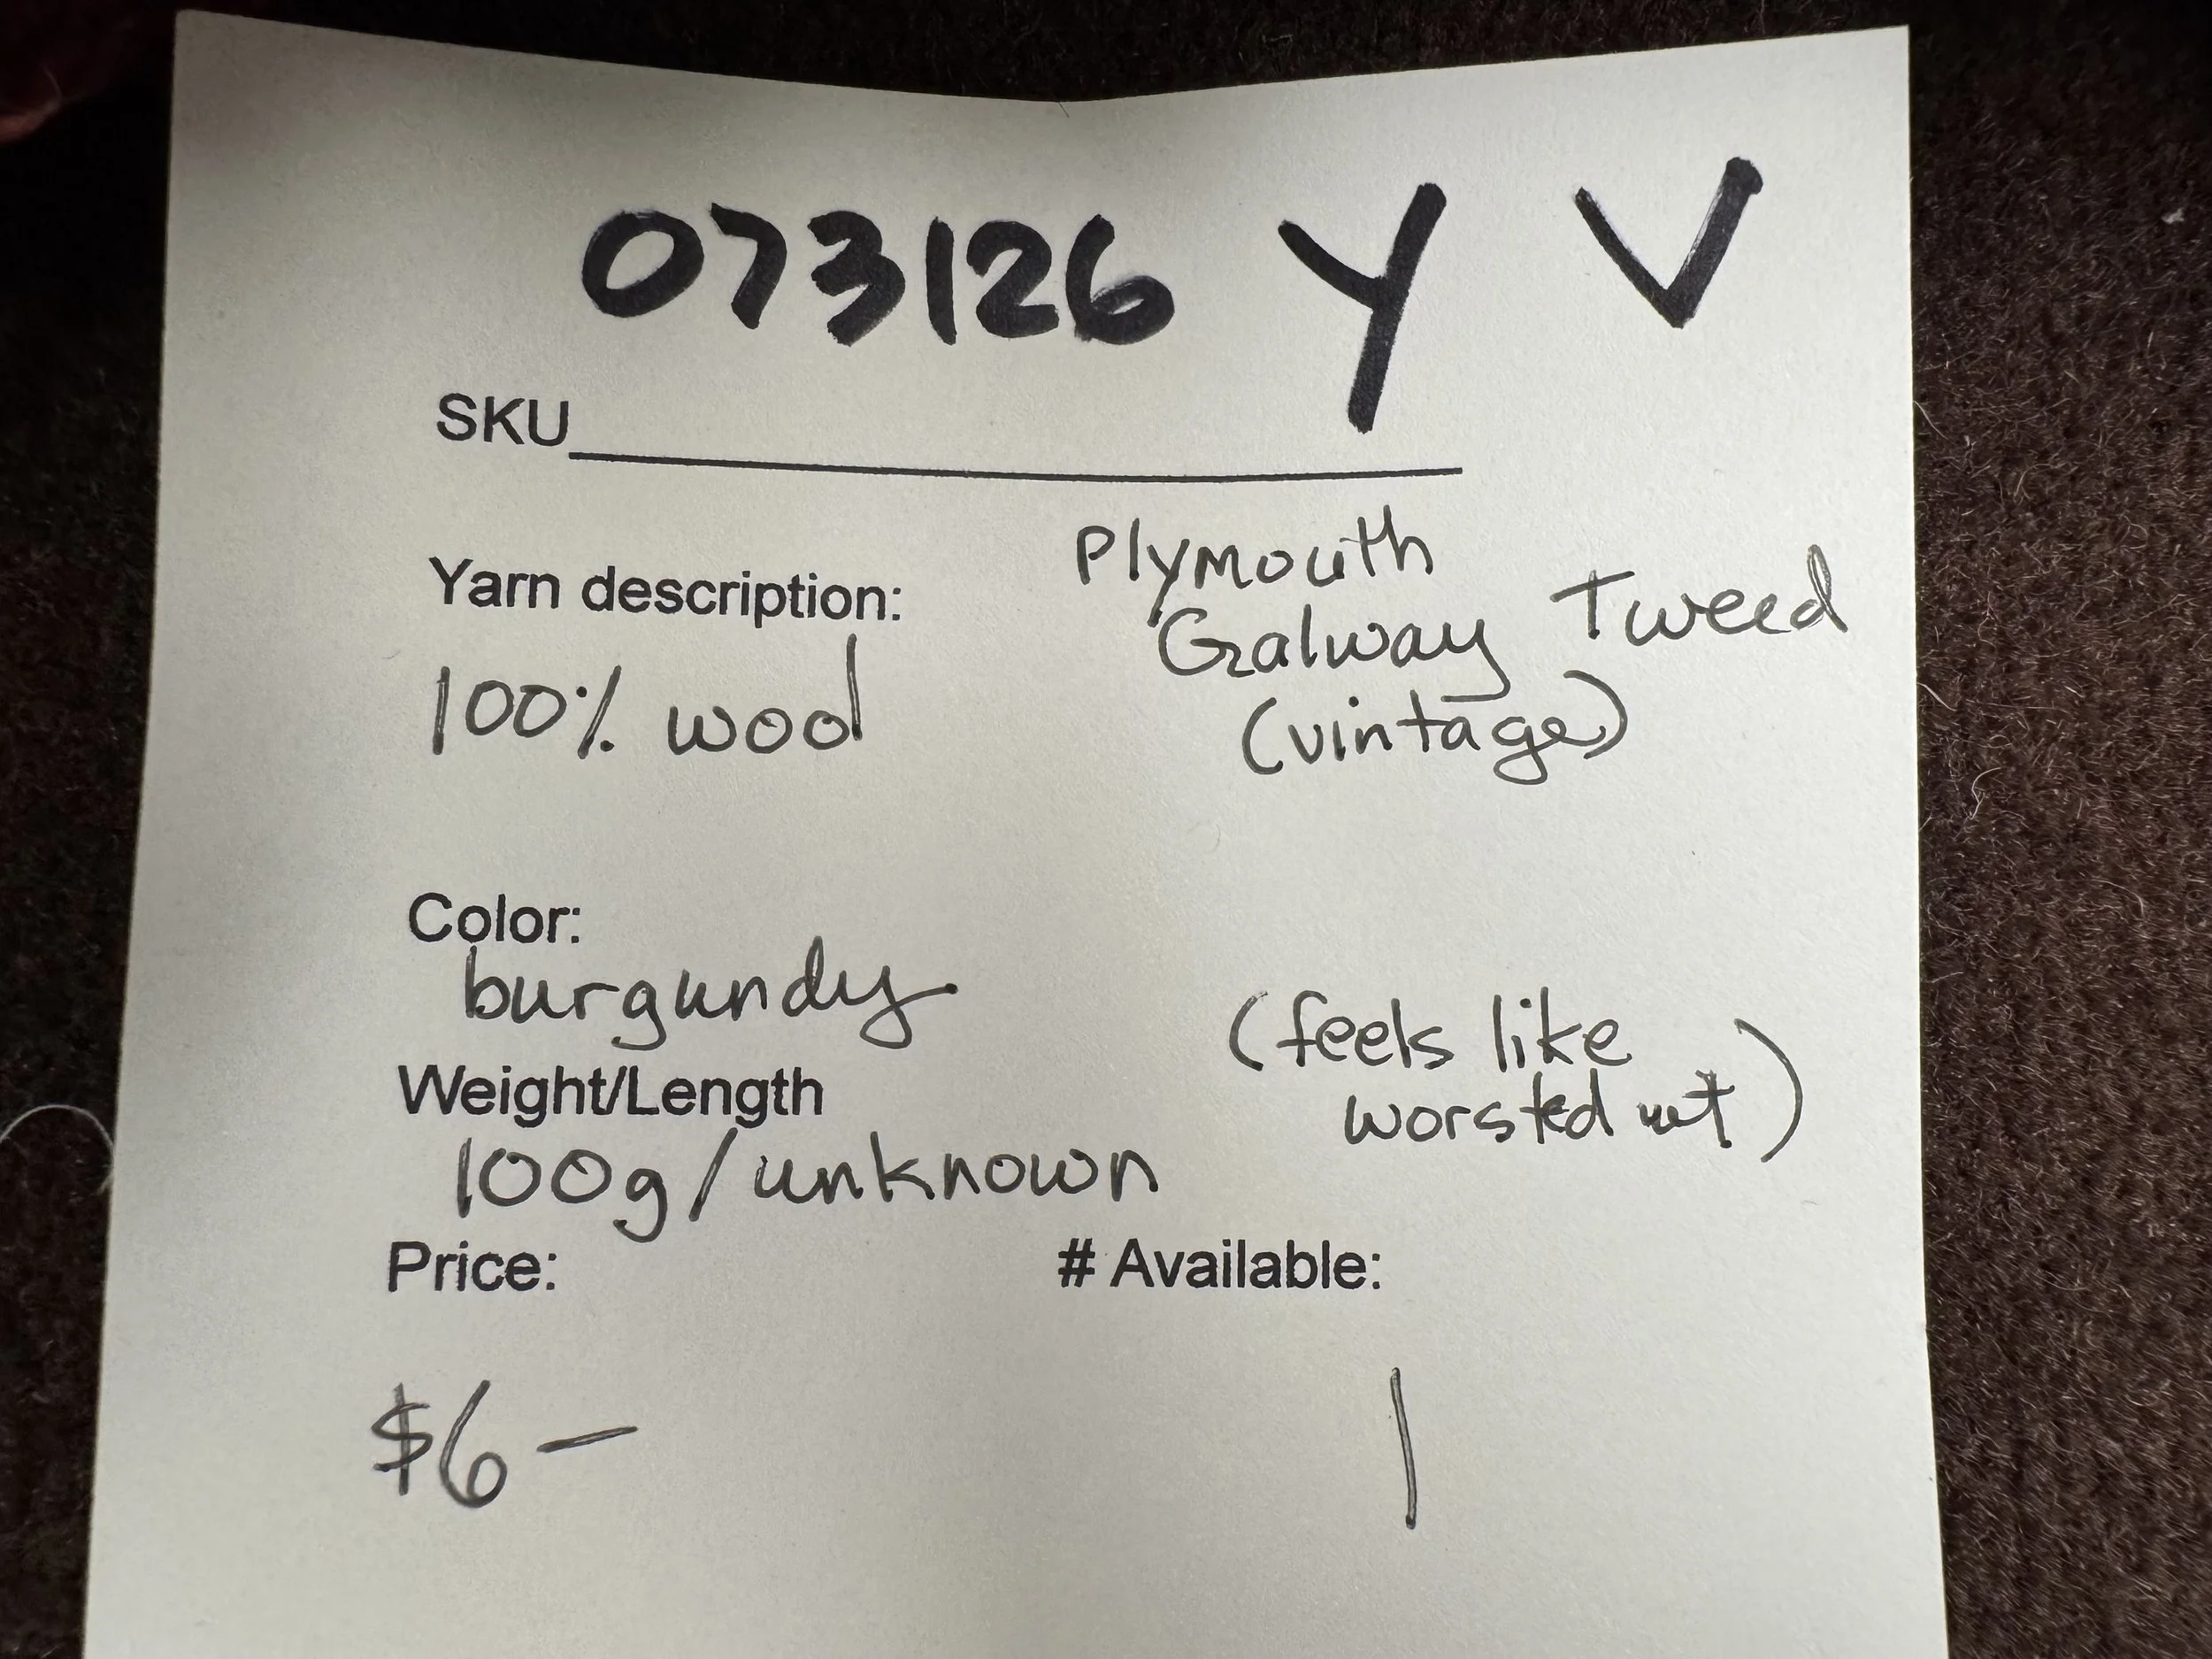 073126 Y V
SKU
Yarn description:
Plymouth
Galway Tweed
(vintage)
100% wool
Color:
burgundy
(feels like
worsted wt)
Weight/Length
100g/unknown
Price:
# Available:
$6 –
1